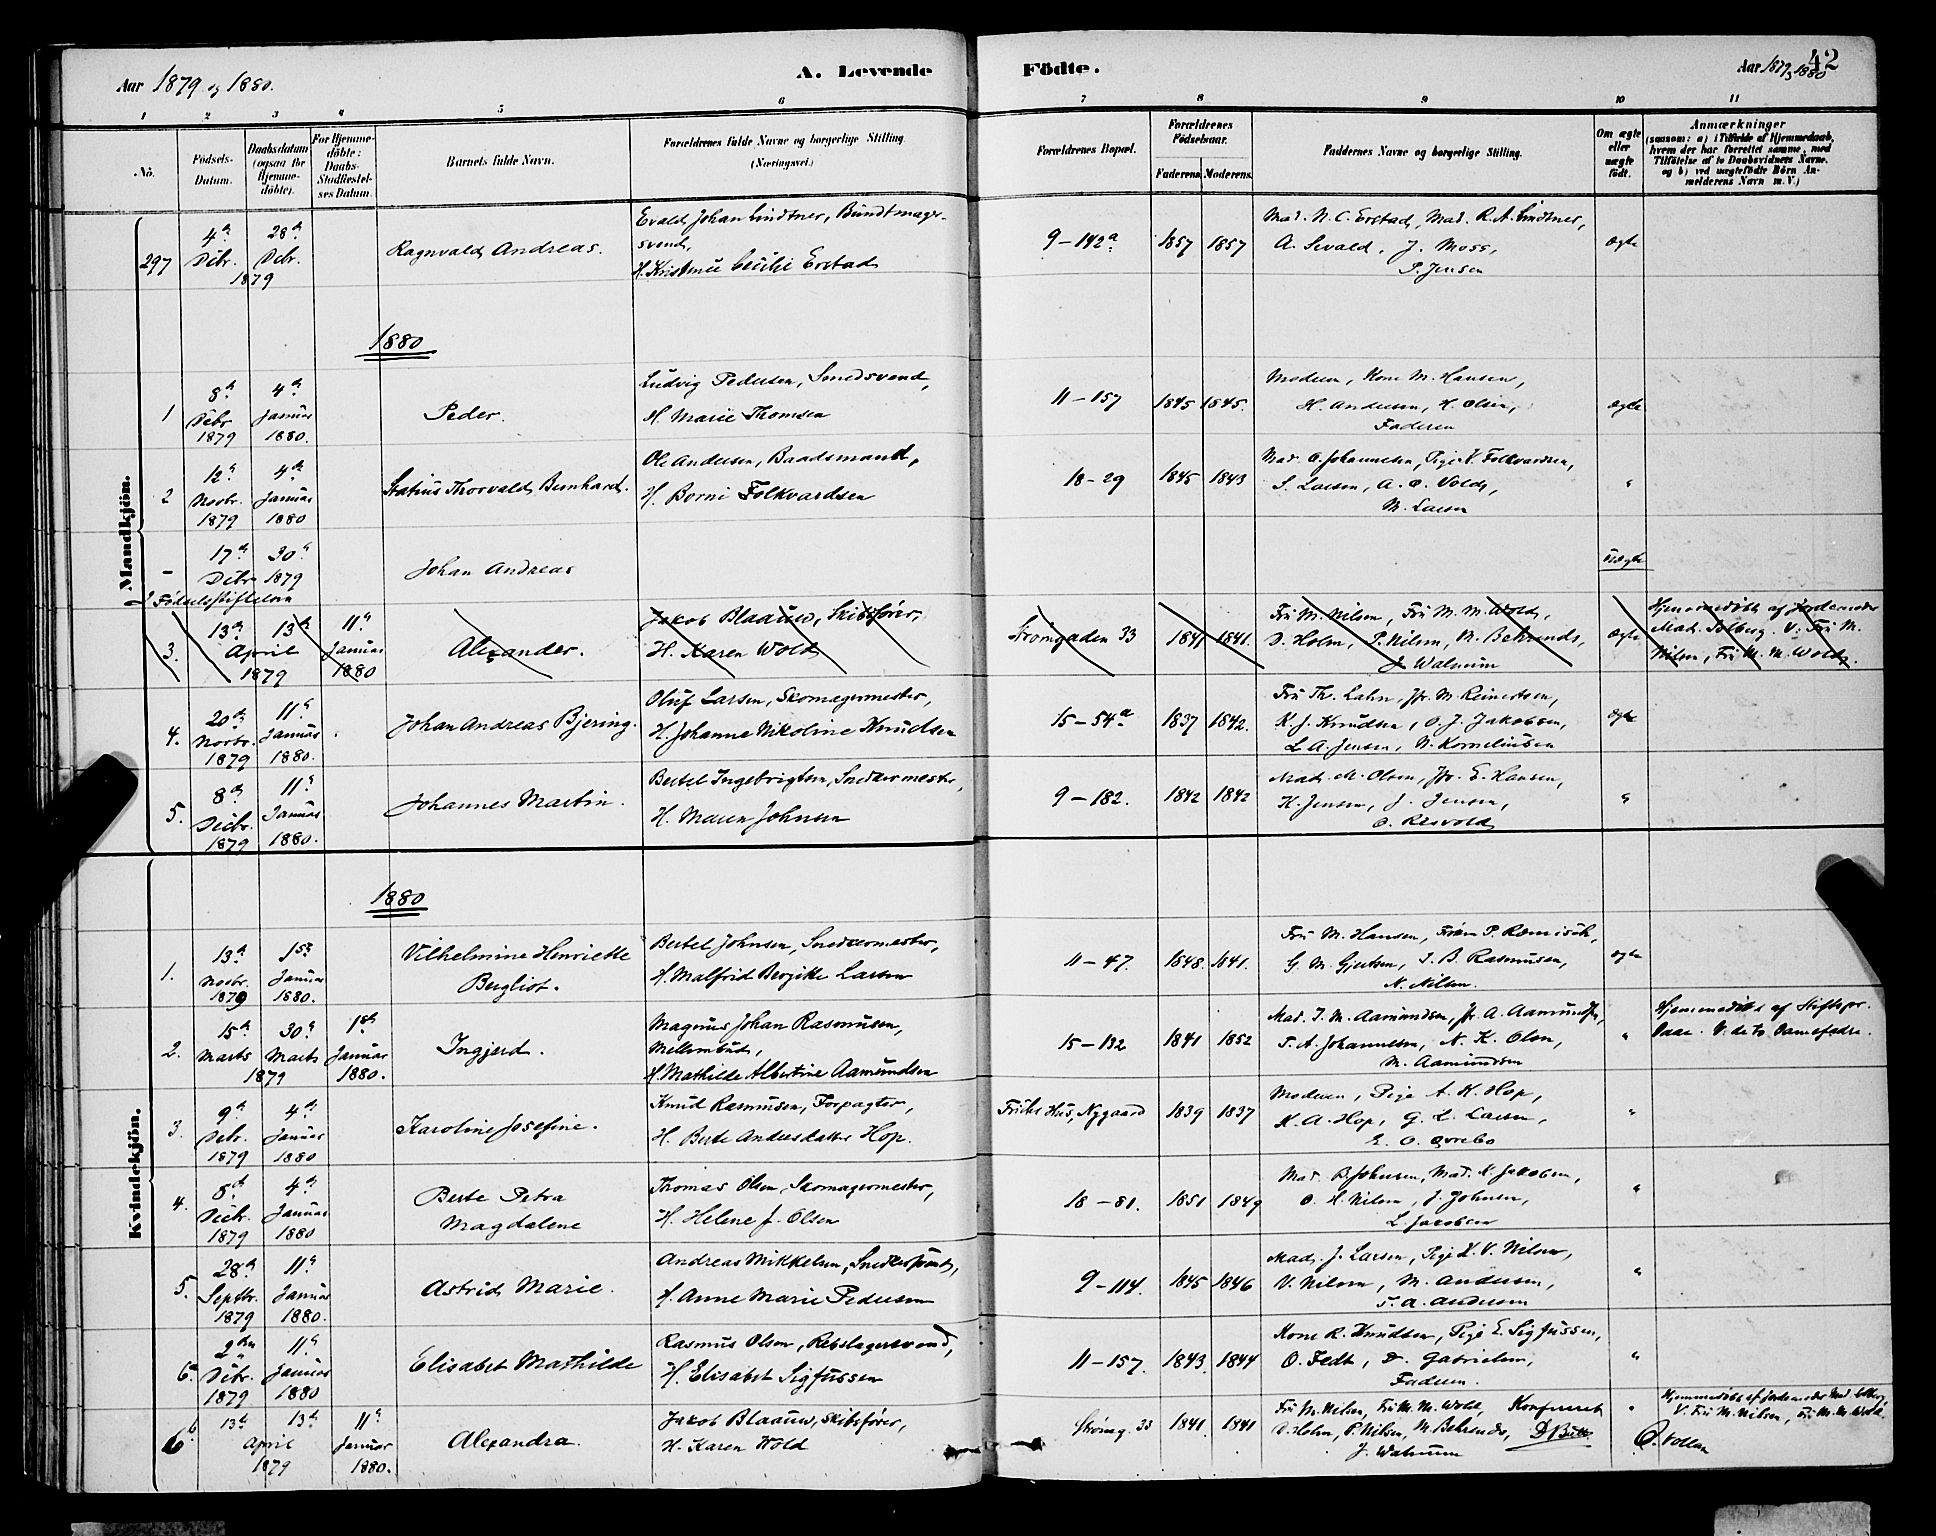 Aar 1879 og 1880.
A. Levende
Födte.
Aar 1879/1880
42
1 2 3 4 5 6 7 8 9 10 11
No.
Födsels-Datum.
Daabsdatum (ogsaa for Hjemme-döbte).
For Hjemme-döbte: Daabs-Stadfæstel-ses Datum.
Barnets fulde Navn.
Forældrenes fulde Navne og borgerlige Stilling (Næringsvei.)
Forældrenes Bopæl.
Forældrenes Födselsaar.
Faderens. Moderens.
Faddernes Navne og borgerlige Stilling.
Om ægte eller uægte födt.
Anmærkninger
(saasom: a) i Tilfælde af Hjemmedaab, hvem der har forrettet samme, med Tilföielse af to Daabsvidners Navne, og b) ved uægtefödte Börn An-melderens Navn m. V.)
Mandkjön.
297 4de Debr. 28de Debr. 1879 Ragnvald Andreas. Evald Johan Lindtner, Bundtmager-svend, H. Kristine Cecilie Erstad 9-142a 1857 1857 Mad. N. C. Erstad, Mad. R. A. Lindtner, A. Sevald, J. Moss, P. Jensen ægte
1880
1 8de Debr 1879 4de Januar 1880. Peder. Ludvig Pedersen, Smedsvend, H. Marie Thomsen 11-157 1845 1845. Moderen, Kone M. Hansen, H. Andersen, H. Olsen, Faderen ægte
2 12te Novbr. 1879 4de Januar 1880 Statius Thorvald Bernhard. Ole Andersen, Baadsmand, H. Borni Folkvardsen 18-29 1845 1843 Mad. O. Johannesen, Pige V. Folkvardsen, S. Larsen, A. O. Vold, M. Larsen "
- 17de Debr 30te 1879 Fødselsstiftelsen Johan Andreas uægte
3. 13de 13de April 1879 11te Januar 1880 Alexander. Jakob Blaauw, Skibsfører, H. Karen Wold Strømgaden 33 1841 1841. Fru M. Nilsen, Fru M. M. Wold, D. Holm, P. Nilsen, M. Behrends, J. Walnum ægte Hjemmedøbt af Jordemoder Mad. Solberg. V: Fru M. Nilsen, Fru M. M. Wold.
4. 20de Novbr. 1879 11te Januar 1880. Johan Andreas Bjering. Oluf Larsen, Skomagermester, H. Johanna Nikoline Knudsen 15-54a 1837 1842. Fru Th. Lahn, Jfr. M. Reinertsen, K. J. Knudsen, O. J. Jakobsen, L. A. Jensen, N. Korneliussen ægte
5. 8de Debr. 1879 11te Januar 1880. Johannes Martin. Bertel Ingebrigtsen, Snedkermester, H. Maren Johnsen 9-182. 1842 1842 Mad. M. Olsen, Jfr. E. Hansen, K. Jensen, J. Jensen, O. Risvold "
Kvindekjön.
1880
1. 13de Novbr. 1879 1ste Januar 1880. Vilhelmine Henriette Bergliot. Bertel Johnsen, Snedkermester, H. Malfrid Bergitte Larsen 11-47. 1848. 1841. Fru M. Hansen, G. M. Gjertsen, S. B. Rasmusen, N. Nilsen. ægte
2. 15de Marts 30te Marts 1879 1ste Januar 1880. Ingjerd. Magnus Johan Rasmusen, H. Mathilde Albertine Aamundsen 15-132 1841 1852 Mad. I. M. Aamundsen, Jfr A. Aamundsen, T. A. Johannesen, N. K. Olsen, M. Aamundsen " Hjemmedøbt af Stiftspr. Daae. V. de to Damefadre.
3. 9de Debr. 1879 4de Januar 1880 Karoline Josefine. Knud Rasmusen, Forpagter, H. Berte Andersdatter Hop. Friis Hus, Nygaard 1839 1837 Moderen, Pige A. K. Hop, K. A. Hop, G. L. Larsen, E. O. Øvrebo "
4. 8de Debr. 1879 4de Januar 1880 Berte Petra Magdalene Thomas Olsen, Skomagermester, H. Helene J. Olsen 18-81. 1851 1849 Mad. B. Johnsen, Mad. K. Jakobsen, O. H. Nilsen, J. Johnsen, L. Jacobsen "
5. 28de Septbr. 1879 11te Januar 1880. Astrid Marie. Andreas Mikkelsen, Snedkersvend, H. Anne Marie Pedersen 9-114. 1845 1846 Mad. J. Larsen, Pige K. V. Nilsen, V. Nilsen, M. Andersen, T. A. Andersen "
6. 2den Debr. 1879 11te Januar 1880 Elisabet Mathilde Rasmus Olsen, Rebslagersvend, H. Elisabet Sigfussen 11-157. 1843. 1844 Kone R. Knudsen, Pige E. Sigfussen, O. Fedt, D. Gabrielsen, Faderen. "
6b 13de 13de April 1879 11te Januar 1880. Alexandra. Jakob Blaauw, Skibsfører, H. Karen Wold Strømg. 33 1841. 1841 Fru M. Nilsen, Fru M. M. Wold, D. Holm, P. Nilsen, M. Behrends, J. Walnum Konfereret " Hjemmedøbt af Jordemoder Mad. Solberg. V. Fru M. Nilsen, Fru M. M. Wold. O. Vollan